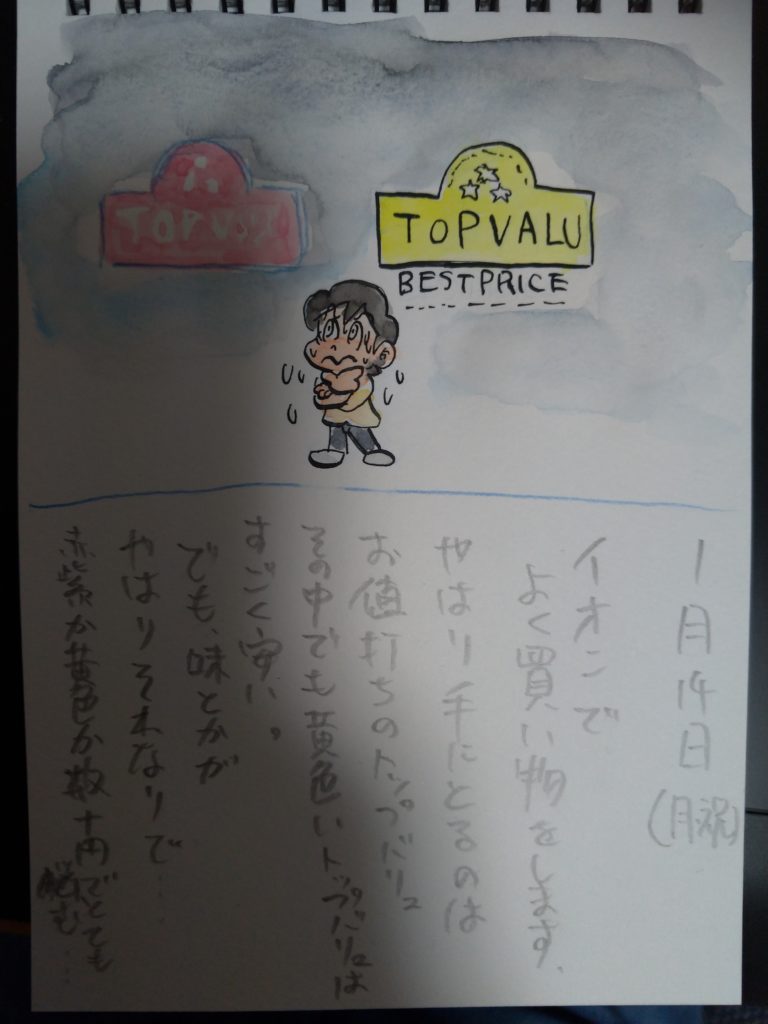 TOPVALU
BESTPRICE
1月14日(月祝)
イオンで
よく買い物をします、
やはり手にとるのは
お値打ちのトップバリュ
その中でも黄色いトップバリュは
すごく安い。
でも、味とかが
やはりそれなりで…
赤紫か黄色か数十円でとても
悩む…